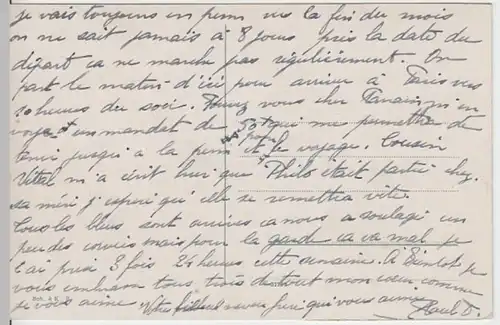 je vais toujours en perm vers la fin du mois
on ne sait jamais à 8 jours près la date du
départ ca ne marche pas régulièrement. On
part le matin d'ici pour arriver à Paris vers
10 heures du soir. Pouvez vous cher Parrain m'en
voyer un mandat de 50f qui me permette de
tenir jusqu'à la perm et pour le voyage. Cousin
Vital m'a écrit hier que Philo était partie chez
sa mère j'espère qu'elle se remettra vite.
Tous les bleus sont arrivés ca nous a soulagé un
peu des corvées mais pour la garde ca va mal je
l'ai prise 3 fois 24 heures cette semaine. A Bientot je
vous embrasse tous trois de tout mon cœur comme
je vous aime Votre filleul neveu qui vous aime
Raul D.